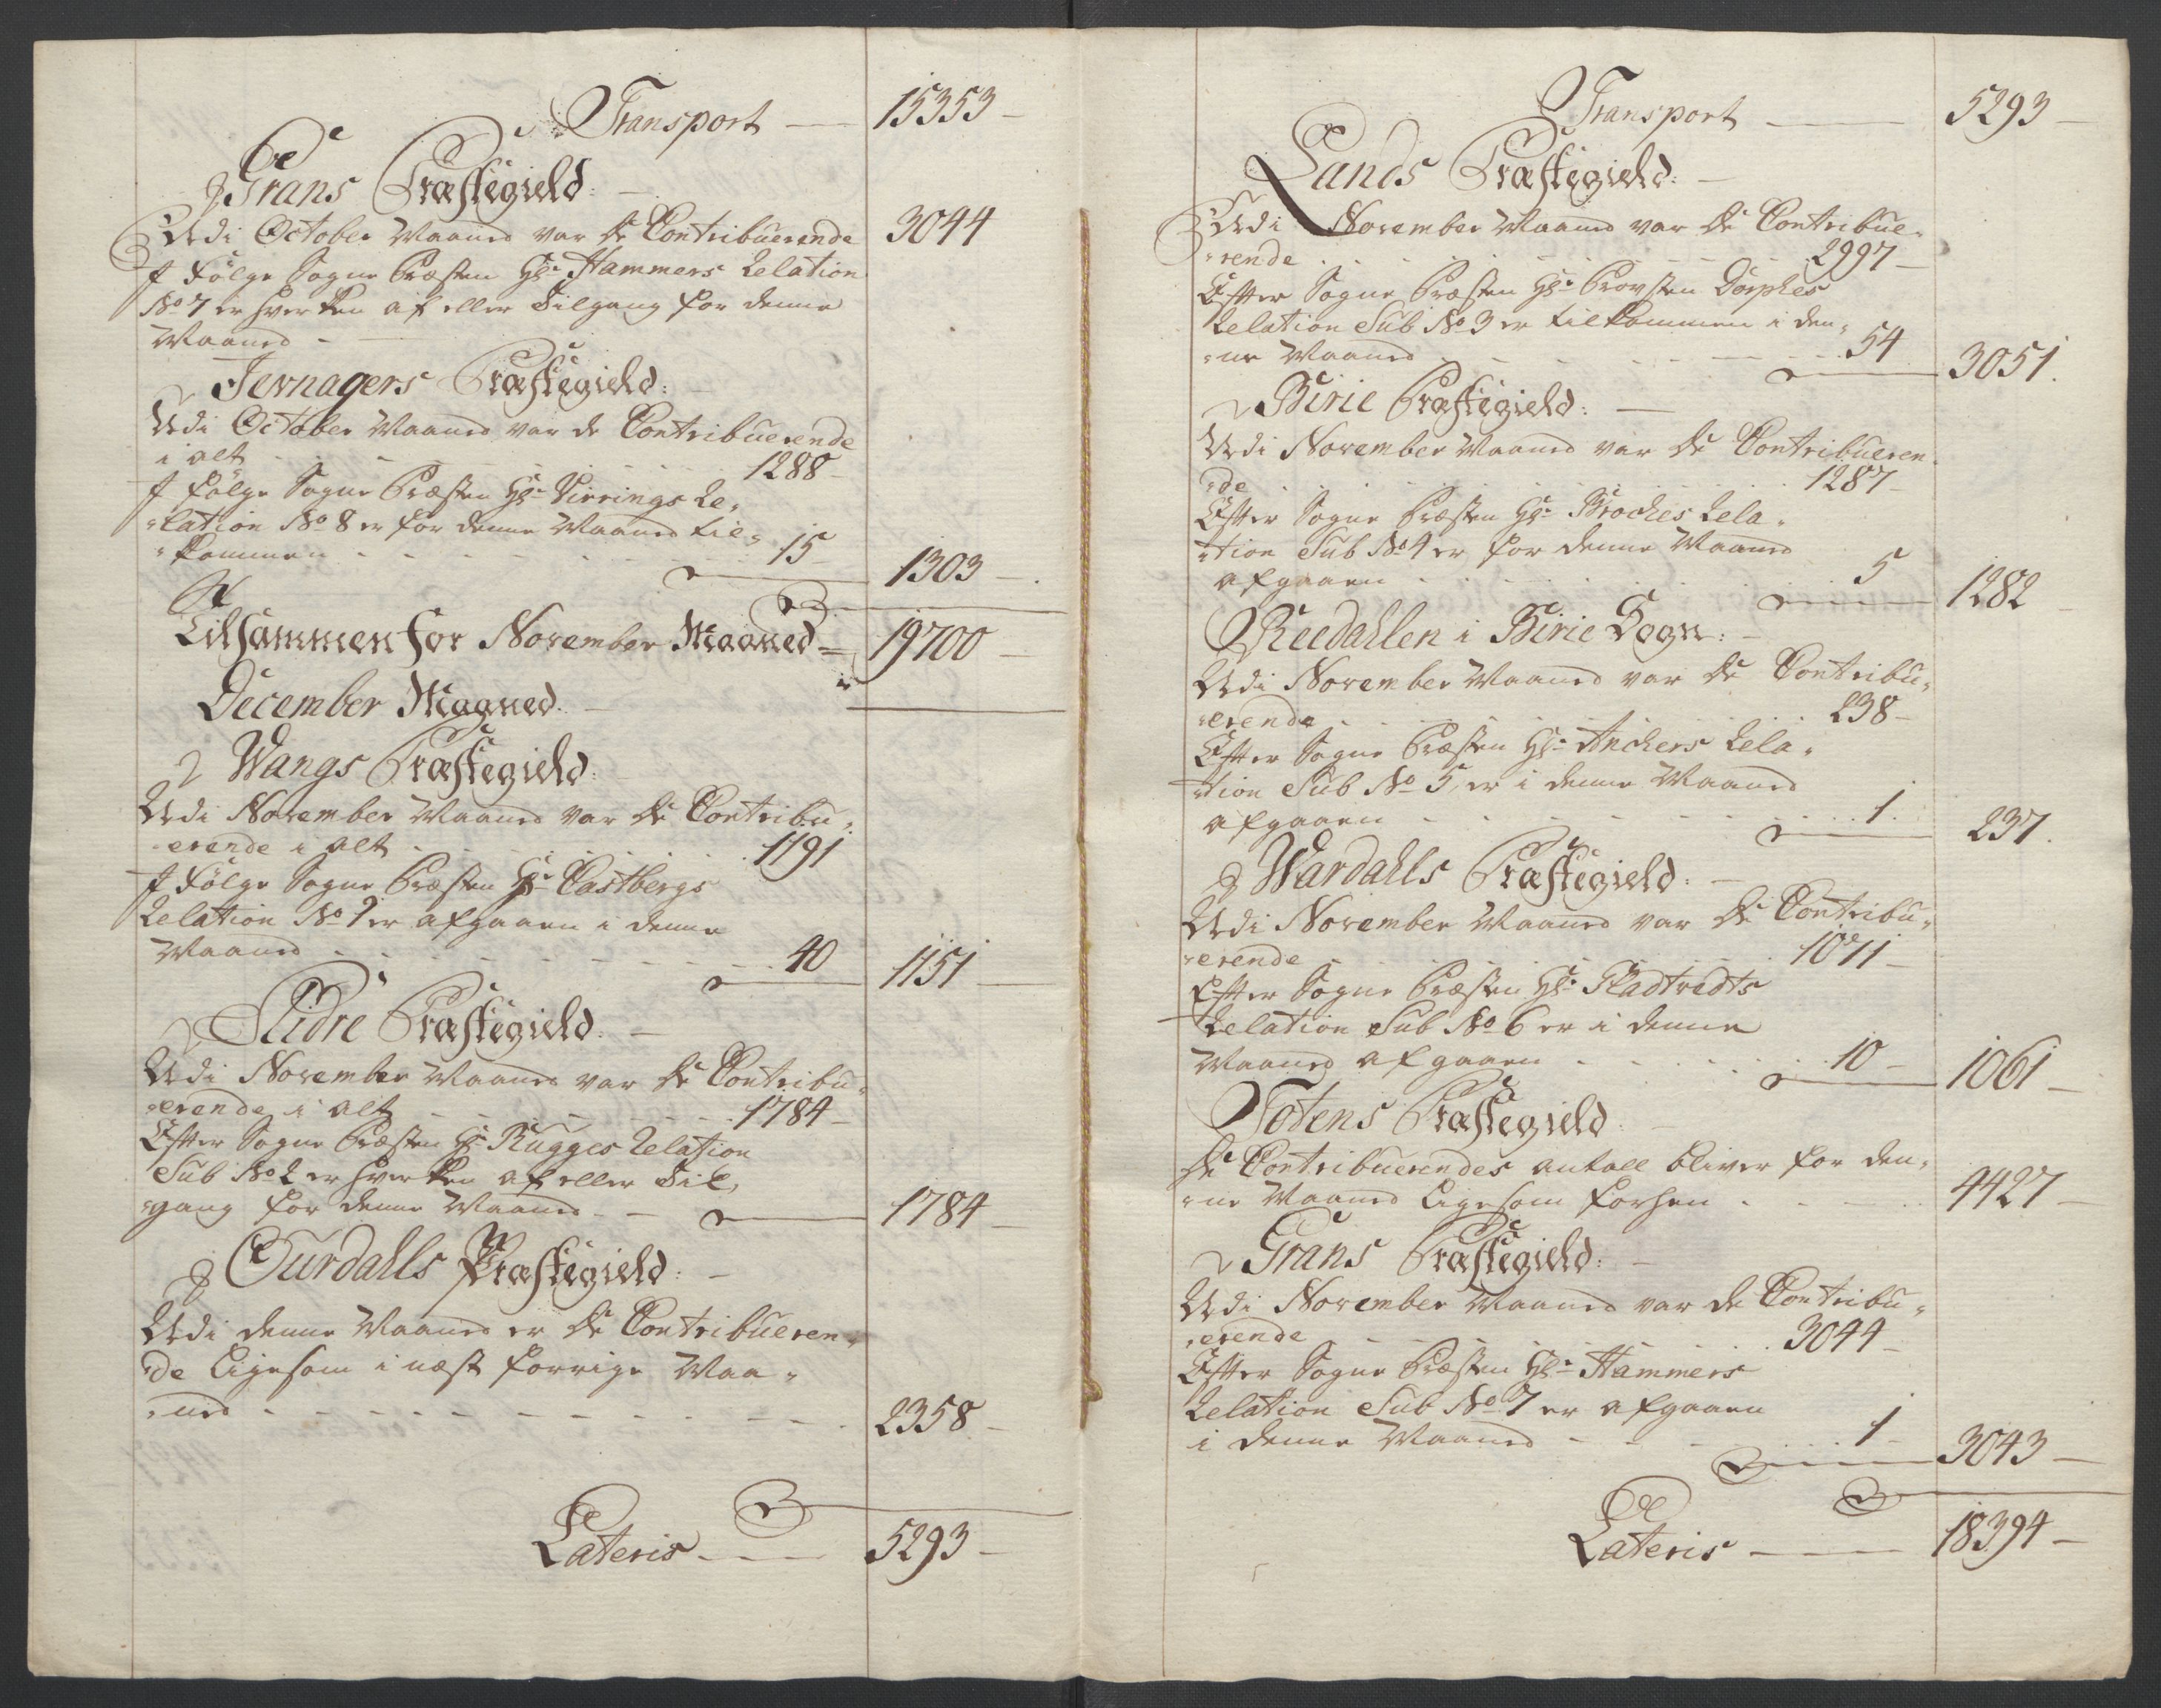 Transport — 15353 —
Grans Præstegield: —
Udi October Maaned var de Contribuerende 3044
J Følge Sogne Præsten Hr. Hammers Relation
No 7 er hverken af eller Tilgang for denne
Maaned —
Jevnagers Præstegield: —
Udi October Maaned var de Contribuerende
i alt . . . 1288 —
J følge Sogne Præsten Hr. Virrings Re„
„lation No 8 er for denne Maaned til„
„kommen . . . 15 — 1303 —
Tilsammen for November Maaned = 19700 —
December Maaned. —
Wangs Præstegield: —
Udi November Maaned var de Contribu„
„erende i alt . . . 1191
J Følge Sogne Præsten Hr. Castbergs
Relation No 1 er afgaaen i denne
Maaned . . . 40 1151 —
Slidre Præstegield: —
Udi November Maaned var de Contribu„
„erende i alt . . . 1784 —
Efter Sogne Præsten Hr. Rugges Relation
Sub No 2 er hverken af eller Til„
„gang for denne Maaned — 1784 —
Ourdahls Præstegield: —
Udi denne Maaned er de Contribueren„
„de ligesom i næst forrige Maa„
„ned . . . 2358 —
Lateris — 5293 —
Transport — 5293 —
Lands Præstegield: —
Udi November Maaned var de Contribue„
„rende . . . 2997 —
Efter Sogne Præsten Hr. Provsten Dorphes
Relation Sub No 3 er tilkommen i den„
„ne Maaned . . . 54 3051.
Birie Præstegield: —
Udi November Maaned var de Contribueren„
„de . . . 1287 —
Efter Sogne Præsten Hr. Broches Rela„
„tion Sub No 4 er for denne Maaned
afgaaen . . . 5 1282 —
Reedahlen i Birie Sogn: —
Udi November Maaned var de Contribu„
„erende . . . 238 —
Efter Sogne Præsten Hr. Anchers Rela„
„tion Sub No 5, er i denne Maaned
afgaaen . . . 1. 237.
Wardahls Præstegield: —
Udi November Maaned var de Contribu„
„erende . . . 1071 —
Efter Sogne Præsten Hr.
Relation Sub No 6 er i denne
Maaned afgaaen . . . 10 — 1061 —
Totens Præstegield: —
De Contribuerendes antall bliver for den„
„ne Maaned ligesom forhen . . . 4427 —
Grans Præstegield: —
Udi November Maaned var de Contribu„
„erende . . . 3044 —
Efter Sogne Præsten Hr. Hammers
Relation Sub No 7 er afgaaen
i denne Maaned . . . 1 — 3043 —
Lateris — 18394 —